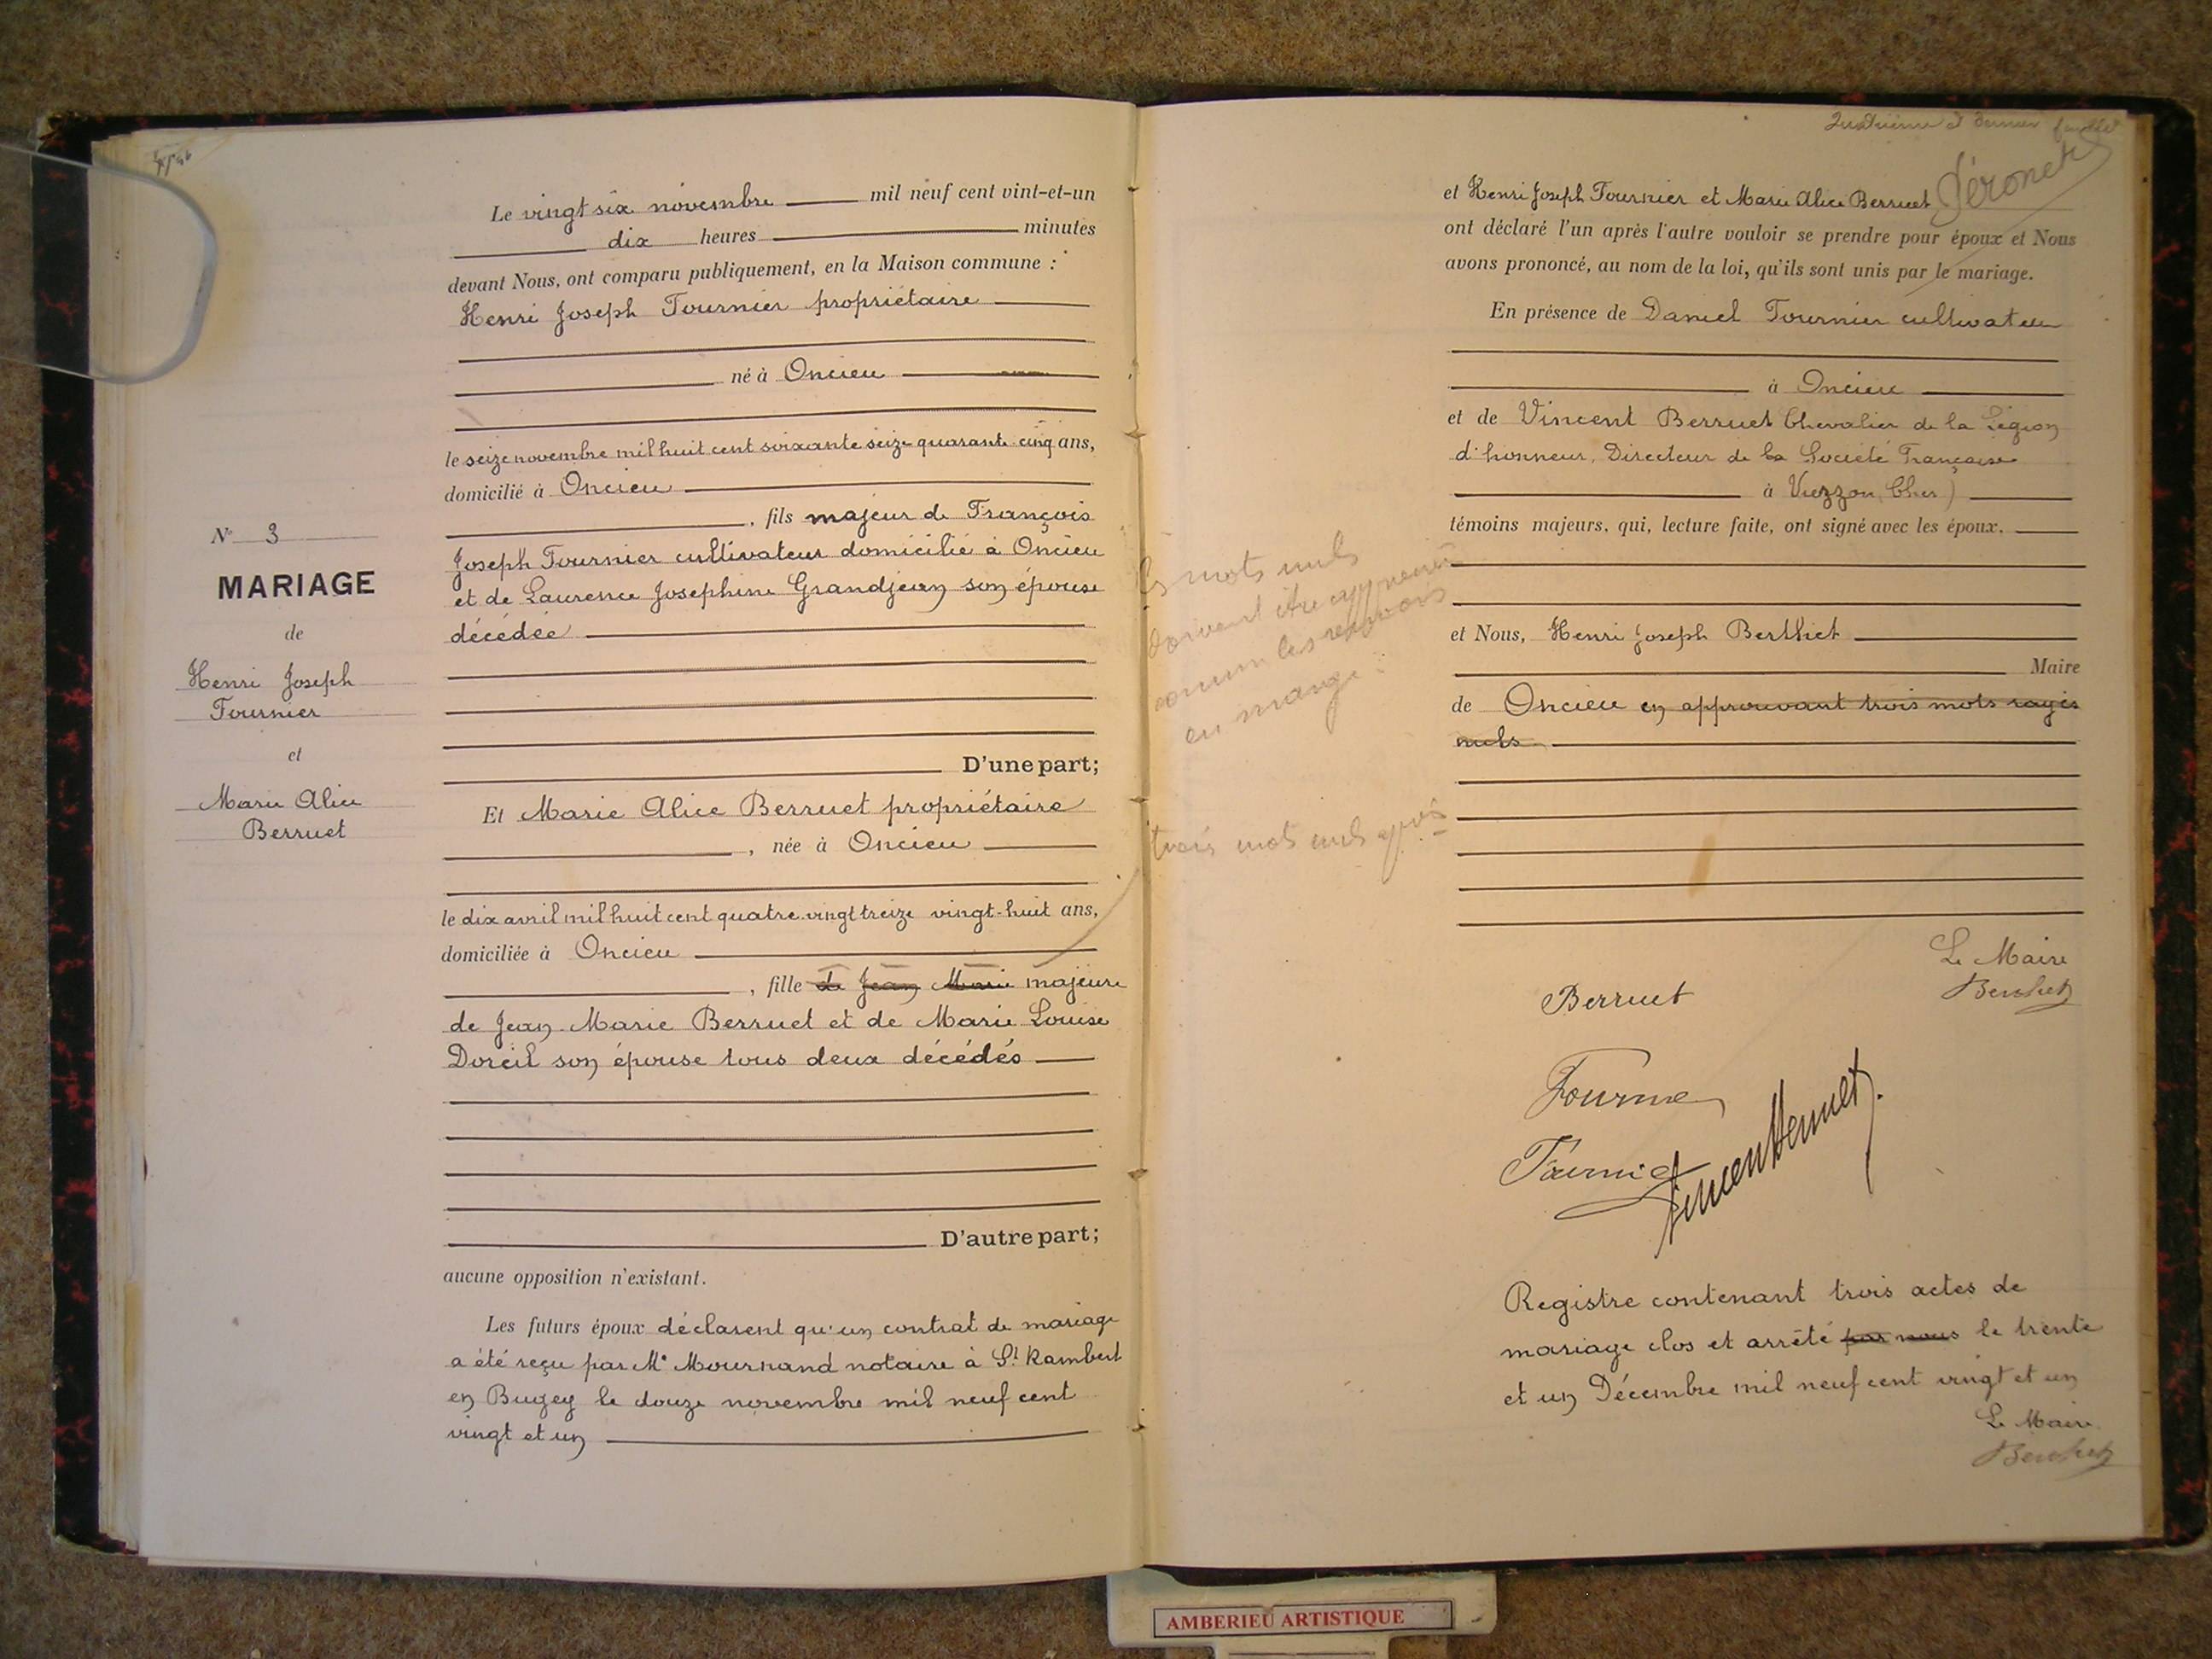 Le vingt six novembre mil neuf cent vint-et-un
dix heures minutes
devant Nous, ont comparu publiquement, en la Maison commune :
Henri Joseph Fournier propriétaire
né à Oncieu
le seize novembre mil huit cent soixante seize quarante cinq ans,
domicilié à Oncieu
, fils majeur de François
Joseph Fournier cultivateur domicilié à Oncieu
et de Laurence Josephine Grandjean son épouse
décédée
D'une part;
N° 3
MARIAGE
de
Henri Joseph
Fournier
et
Marie Alice
Berruet
Et Marie Alice Berruet propriétaire
, née à Oncieu
le dix avril mil huit cent quatre-vingt treize vingt-huit ans,
domiciliée à Oncieu
, fille de Jean Marie majeure
de Jean-Marie Berruet et de Marie Louise
Doreil son épouse tous deux décédés
D'autre part;
aucune opposition n'existant.
Les futurs époux déclarent qu'un contrat de mariage
a été reçu par Me Mournand notaire à St Rambert
en Bugey le douze novembre mil neuf cent
vingt et un
Quatrième et dernier feuillet
et Henri Joseph Fournier et Marie Alice Berruet
ont déclaré l'un après l'autre vouloir se prendre pour époux et Nous
avons prononcé, au nom de la loi, qu'ils sont unis par le mariage.
En présence de Daniel Fournier cultivateur
à Oncieu
et de Vincent Berruet Chevalier de la Légion
d'honneur, Directeur de la Société Française
à Vierzon, Cher)
témoins majeurs, qui, lecture faite, ont signé avec les époux.
et Nous, Henri Joseph Berthet
Maire
de Oncieu en approuvant trois mots rayés
nuls
les mots nuls
doivent être approuvés
comme les renvois
en marge
trois mots nuls
Le Maire
Berthet
Berruet
Fournier
Fournier
Vincent Berruet
Registre contenant trois actes de
mariage clos et arrêté par nous le trente
et un Décembre mil neuf cent vingt et un
Le Maire
Berthet
AMBERIEU ARTISTIQUE